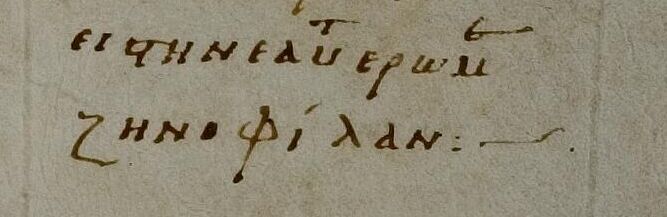 ειϛηνεαυτ ερωμε
ζηνοφίλαν:—.